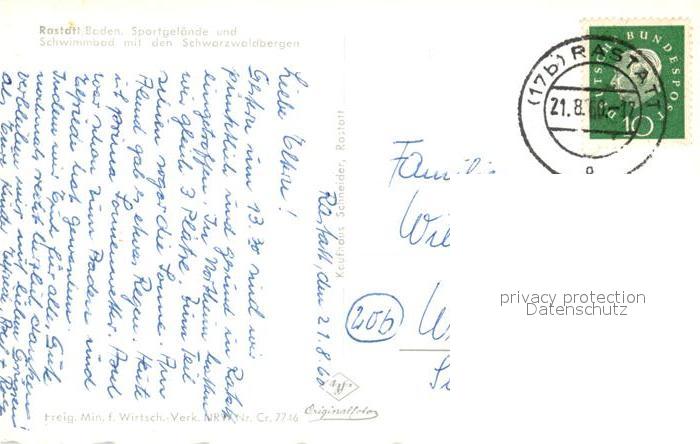 Rastatt Baden. Sportgelände und
Schwimmbad mit den Schwarzwaldbergen
Rastatt, den 21.8.60
Liebe Eltern!
Gestern um 13.30 sind wir
pünktlich und gesund in Rastatt
eingetroffen. In Northeim hatten
wir gleich 3 Plätze. Zum Teil
schien sogar die Sonne. Am
Abend gab es etwas Regen. Heute
ist prima Sonnenwetter. Paul
war schon zum Baden und
hat gewonnen.
Indem wir Euch für alles Gute
nochmals recht herzlich danken
verbleiben wir mit lieben Grüßen
Eure Kinder
Kaufhaus Schneider, Rastatt
Freig. Min. f. Wirtsch.-Verk. NRW Nr. Cr. 7746
Agfa
Originalfoto
DEUTSCHE BUNDESPOST
10
(17b) RASTATT
21.8.60-17
a
Familie
Wil
20b
W
privacy protection
Datenschutz